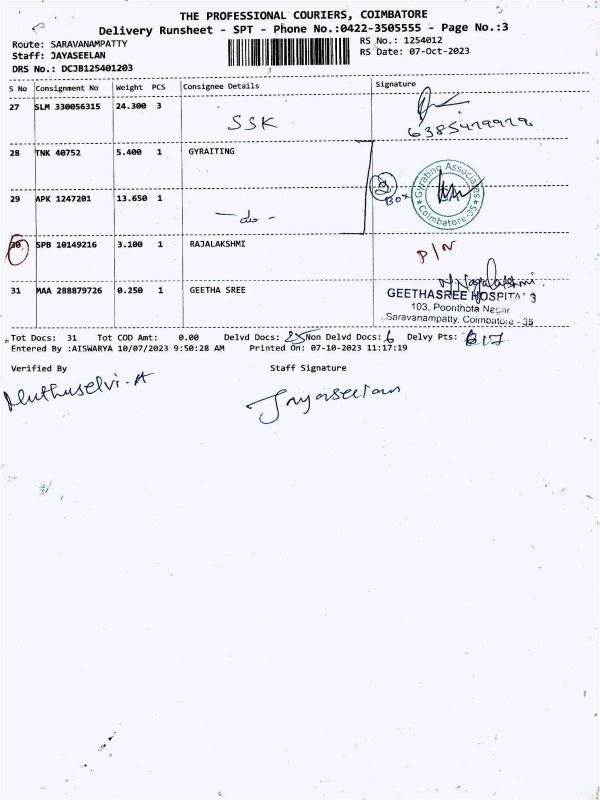 THE PROFESSIONAL COURIERS, COIMBATORE
Delivery Runsheet - SPT - Phone No.:0422-3505555 - Page No.:3
Route: SARAVANAMPATTY
RS No.: 1254012
Staff: JAYASEELAN
RS Date: 07-Oct-2023
DRS No.: DCJB125401203
S No Consignment No Weight PCS Consignee Details Signature
27 SLM 330056315 24.300 3 SSK
28 TNK 40752 5.400 1 GYRAITING
2 BOX
Gyrating Associates
Coimbatore-35
29 APK 1247201 13.650 1 -do-
30 SPB 10149216 3.100 1 RAJALAKSHMI P/N
31 MAA 288879726 0.250 1 GEETHA SREE
N. Nagalakshmi
GEETHASREE HOSPITA
103, Poonthota Nagar
Saravanampatty, Coimbatore - 35
Tot Docs: 31 Tot COD Amt: 0.00 Delvd Docs: 25 Non Delvd Docs: 6 Delvy Pts: 17
Entered By :AISWARYA 10/07/2023 9:50:28 AM Printed On: 07-10-2023 11:17:19
Verified By Staff Signature
Muthuselvi-A Jayaseelan